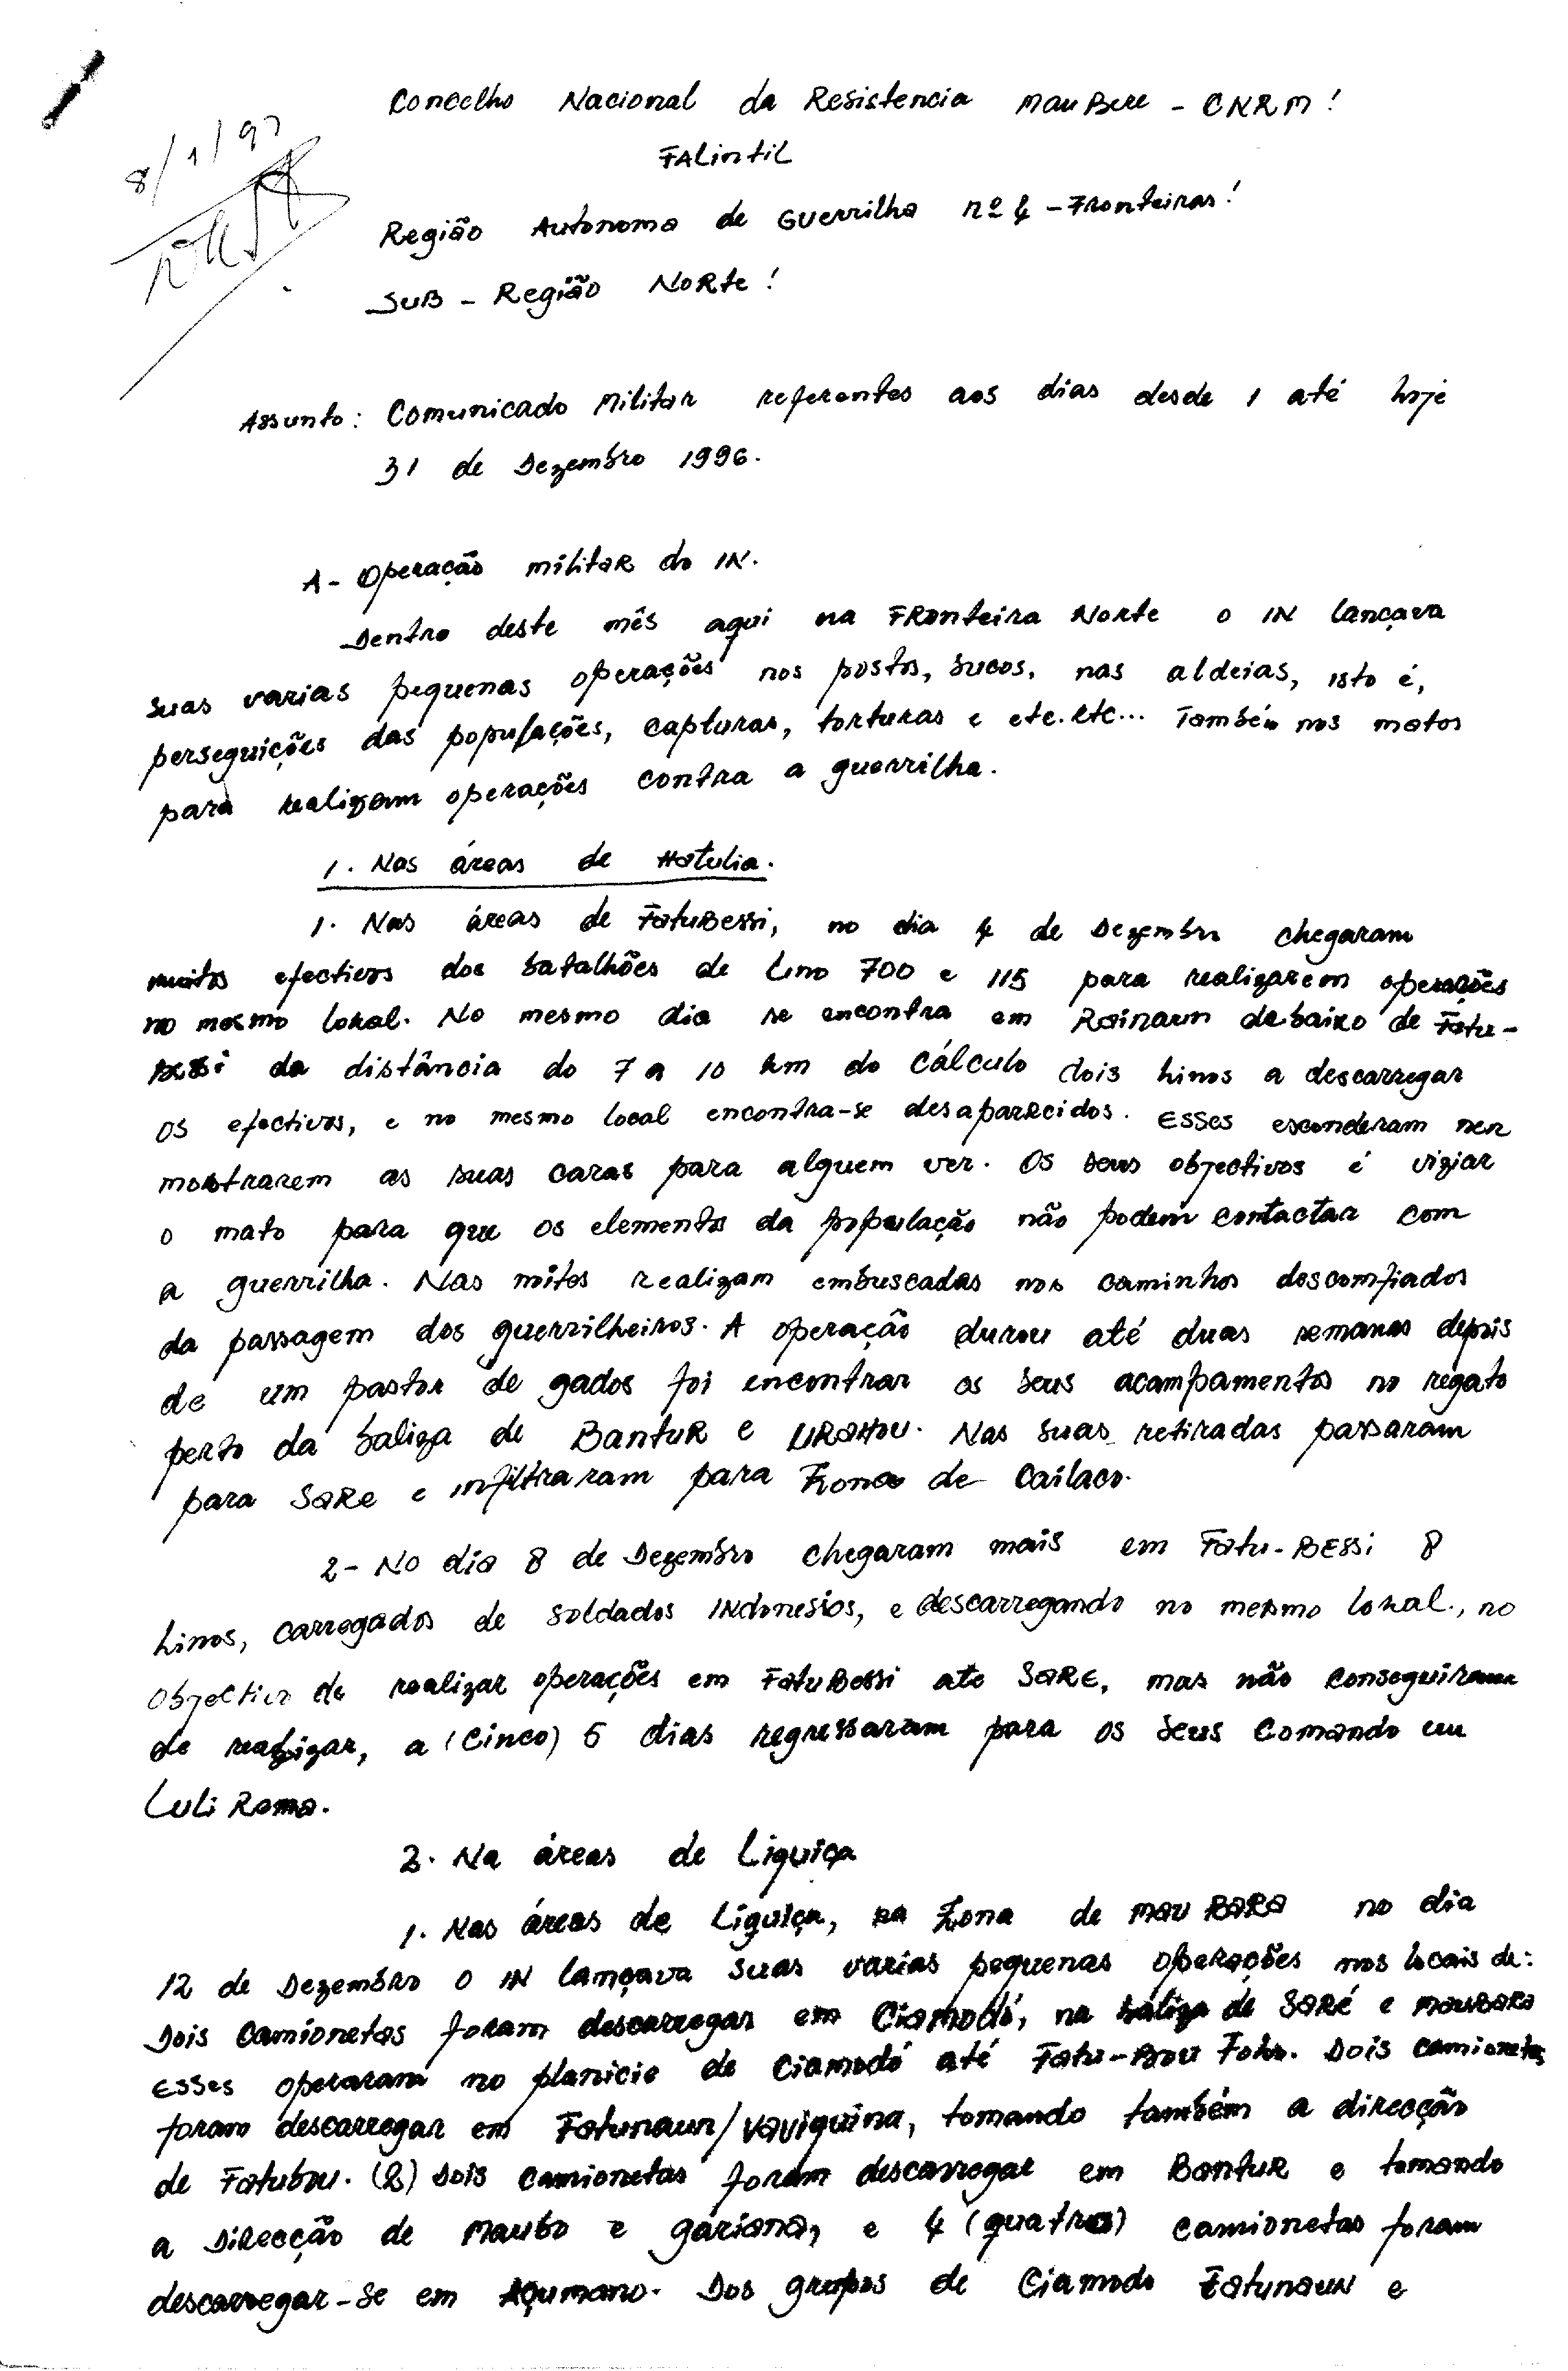 Concelho Nacional da Resistencia MauBere - CNRM!
8/1/97
FALintil
Região Autonoma de Guerrilha nº 4 - Fronteiras!
SUB - Região NORte!
Assunto: Comunicado Militar referentes aos dias desde 1 até hoje
31 de Dezembro 1996.
A - Operação militar do IN.
Dentro deste mês aqui na FRonteira Norte o IN lançava
suas varias pequenas operações nos postos, sucos, nas aldeias, isto é,
perseguições das populações, capturas, torturas e etc. etc... Também nos matos
para realizam operações contra a guerrilha.
1. Nas áreas de Hatulia.
1. Nas áreas de FatuBessi, no dia 4 de Dezembro chegaram
muitos efectivos dos batalhões de Lino 700 e 115 para realizarem operações
no mesmo lokal. No mesmo dia se encontra em Roinaun debaixo de Fatu-
Bessi da distância do 7 a 10 km do cálculo dois hinos a descarregar
os efectivos, e no mesmo local encontra-se desaparecidos. Esses esconderam nen
mostrarem as suas caras para alguem ver. Os seus objectivos é vigiar
o mato para que os elementos da população não podem contactar com
a guerrilha. Nas noites realizam embuscadas nos caminhos descomfiados
da passagem dos guerrilheiros. A operação durou até duas semanas depois
de um pastor de gados foi encontrar os seus acampamentos no regato
perto da baliza de BantuR e URAHou. Nas suas retiradas passaram
para SaRe e infiltraram para Zona de Cailaco.
2 - No dia 8 de Dezembro chegaram mais em Fatu-BEssi 8
hinos, carregados de soldados INdonesios, e descarregando no mesmo lokal., no
objectivo de realizar operações em FatuBessi ate SaRE, mas não conseguiram
de realizar, a (cinco) 5 dias regressaram para os seus comando em
Luli Roma.
2. Na áreas de Liquiça
1. Nas áreas de Liquiça, na Zona de MauBARA no dia
12 de Dezembro o IN lançava suas varias pequenas operações nos locais de:
Dois camionetas foram descarregar em Ciamodó, na baliza de Saré e Maubara
Esses operaram no planicie de Ciamodó até Fatu-Bou Foho. Dois camionetas
foram descarregar em Fatunaun/Vaviquina, tomando também a direcção
de Fatubou. (2) Dois camionetas foram descarregar em BantuR e tomando
a Direcção de Maubo e gáriana, e 4 (quatro) camionetas foram
descarregar-se em Açumano. Dos grupos de Ciamodo Fatunaun e